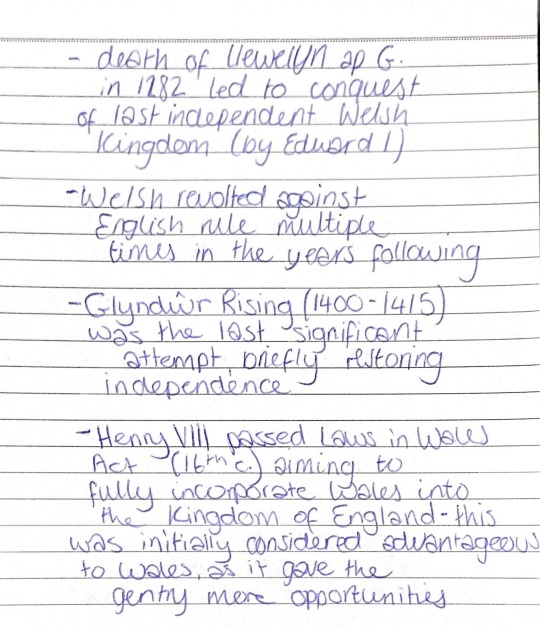 - death of Llewellyn ap G.
in 1282 led to conquest
of last independent Welsh
Kingdom (by Edward I)
-Welsh revolted against
English rule multiple
times in the years following
-Glyndŵr Rising (1400-1415)
was the last significant
attempt, briefly restoring
independence
-Henry VIII passed Laws in Wales
Act (16th c.) aiming to
fully incorporate Wales into
the Kingdom of England-this
was initially considered advantageous
to Wales, as it gave the
gentry more opportunities